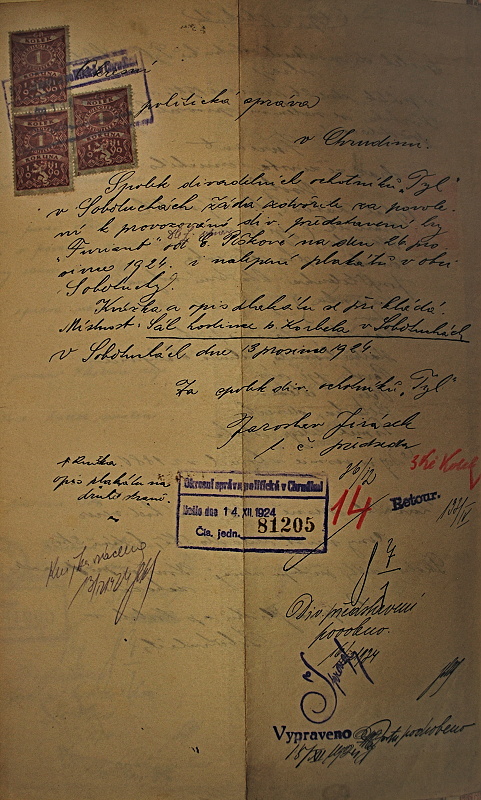 KOLEK
1
KORUNA
KOLEK
1
KORUNA
KOLEK
1
KORUNA
politická správa
v Chrudimi.
Spolek divadelních ochotníků „Tyl“
v Sobětuchách žádá zdvořile za povole-
ní k provozování div. představení hry
„Furiant“ od na den 26 pro
since 1924. i nalepení plakátů v obci
Sobětuchy.
Knížka a opis plakátu se přikládá.
Místnost: Sál hostince p. v Sobětuchách
V Sobětuchách dne 13 prosince 1924.
Za spolek div. ochotníků „Tyl“
Jaroslav Jirásek
t. č. předseda
1 Knížka
opis plakátu na
druhé straně
16/12
14
Retour.
Okresní správa politická v Chrudimi
Došlo dne 14. XII. 1924
Čís. jedn. 81205
Knížka vrácena
7
1
Div. představení
povoleno.
Vypraveno